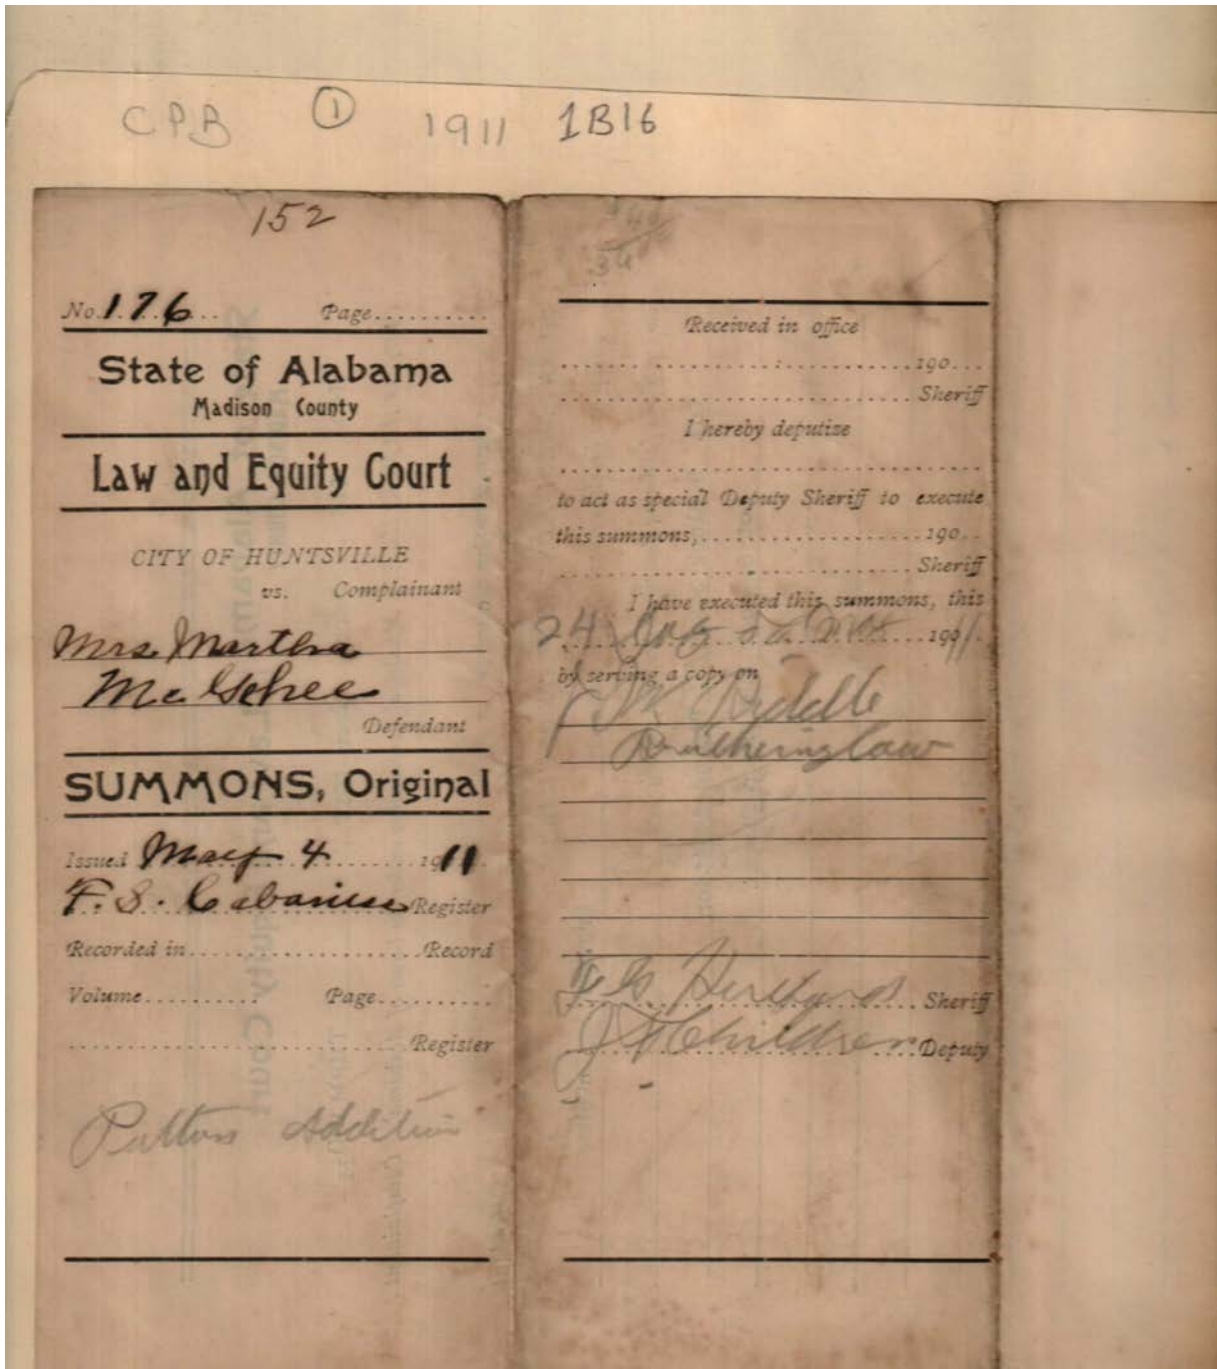 CPB 1 1911 1B16
152
No. 176 Page..........
State of Alabama
Madison County
Law and Equity Court
CITY OF HUNTSVILLE
vs. Complainant
Mrs. Martha
McGehee
Defendant
SUMMONS, Original
Issued May 4 1911
F. S. Cabaniss Register
Recorded in .................... Record
Volume.......... Page..........
.............................. Register
Pattons Addition
Received in office
.............................. 190...
.............................. Sheriff
I hereby deputize
..............................
to act as special Deputy Sheriff to execute
this summons, .................... 190..
.............................. Sheriff
I have executed this summons, this
24 1911.
by serving a copy on
Riddle
Sheriff
J Childress Deputy